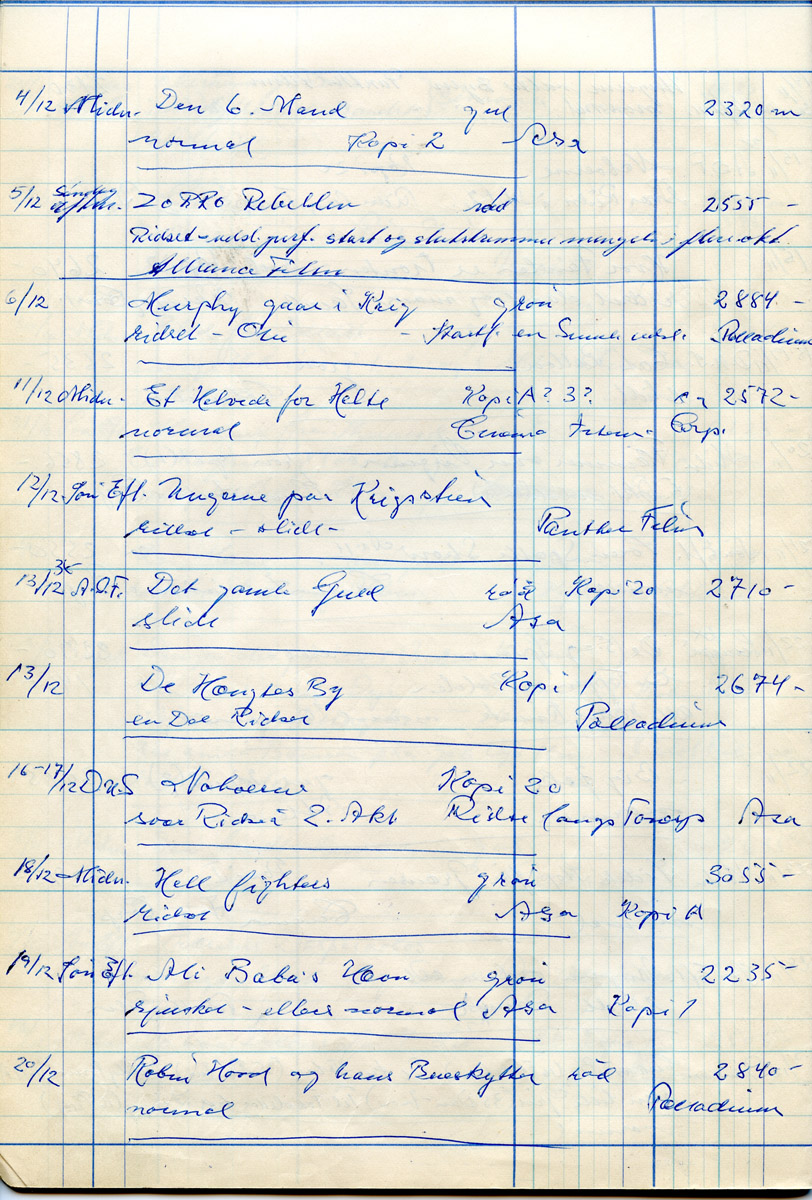 4/12 Midn. Den 6. Mand gul 2320 m
normal Kopi 2 Asa
5/12 Søndag ZORRO Rebellen rød 2555 -
Ridset - perf. start og mangels i flere akt.
Film
6/12 Murphy gaar i Krig grøn 2884 -
ridset - Olie - en Palladium
11/12 Midn. Et Helvede for Helte Kopi A? 3? 2572 -
normal Cinema Corp.
12/12 Søn Eft. Ungerne paa Krigsstien
ridset - slidt - Panther Film
13/12 A.O.F. Det gamle Guld rød Kopi 20 2710 -
slidt Asa
13/12 De Hængtes By Kopi 1 2674 -
en Del Ridser Palladium
16-17/12 Naboerne Kopi 20
svær Ridse i 2. Akt Ridse langs Asa
18/12 Midn. Hell fighters grøn 3055 -
ridset Asa Kopi A
19/12 Søn Eft. Ali Baba's Høvn grøn 2235 -
ellers normal Asa Kopi 1
20/12 Robin Hood og hans Bueskytter rød 2840 -
normal Palladium